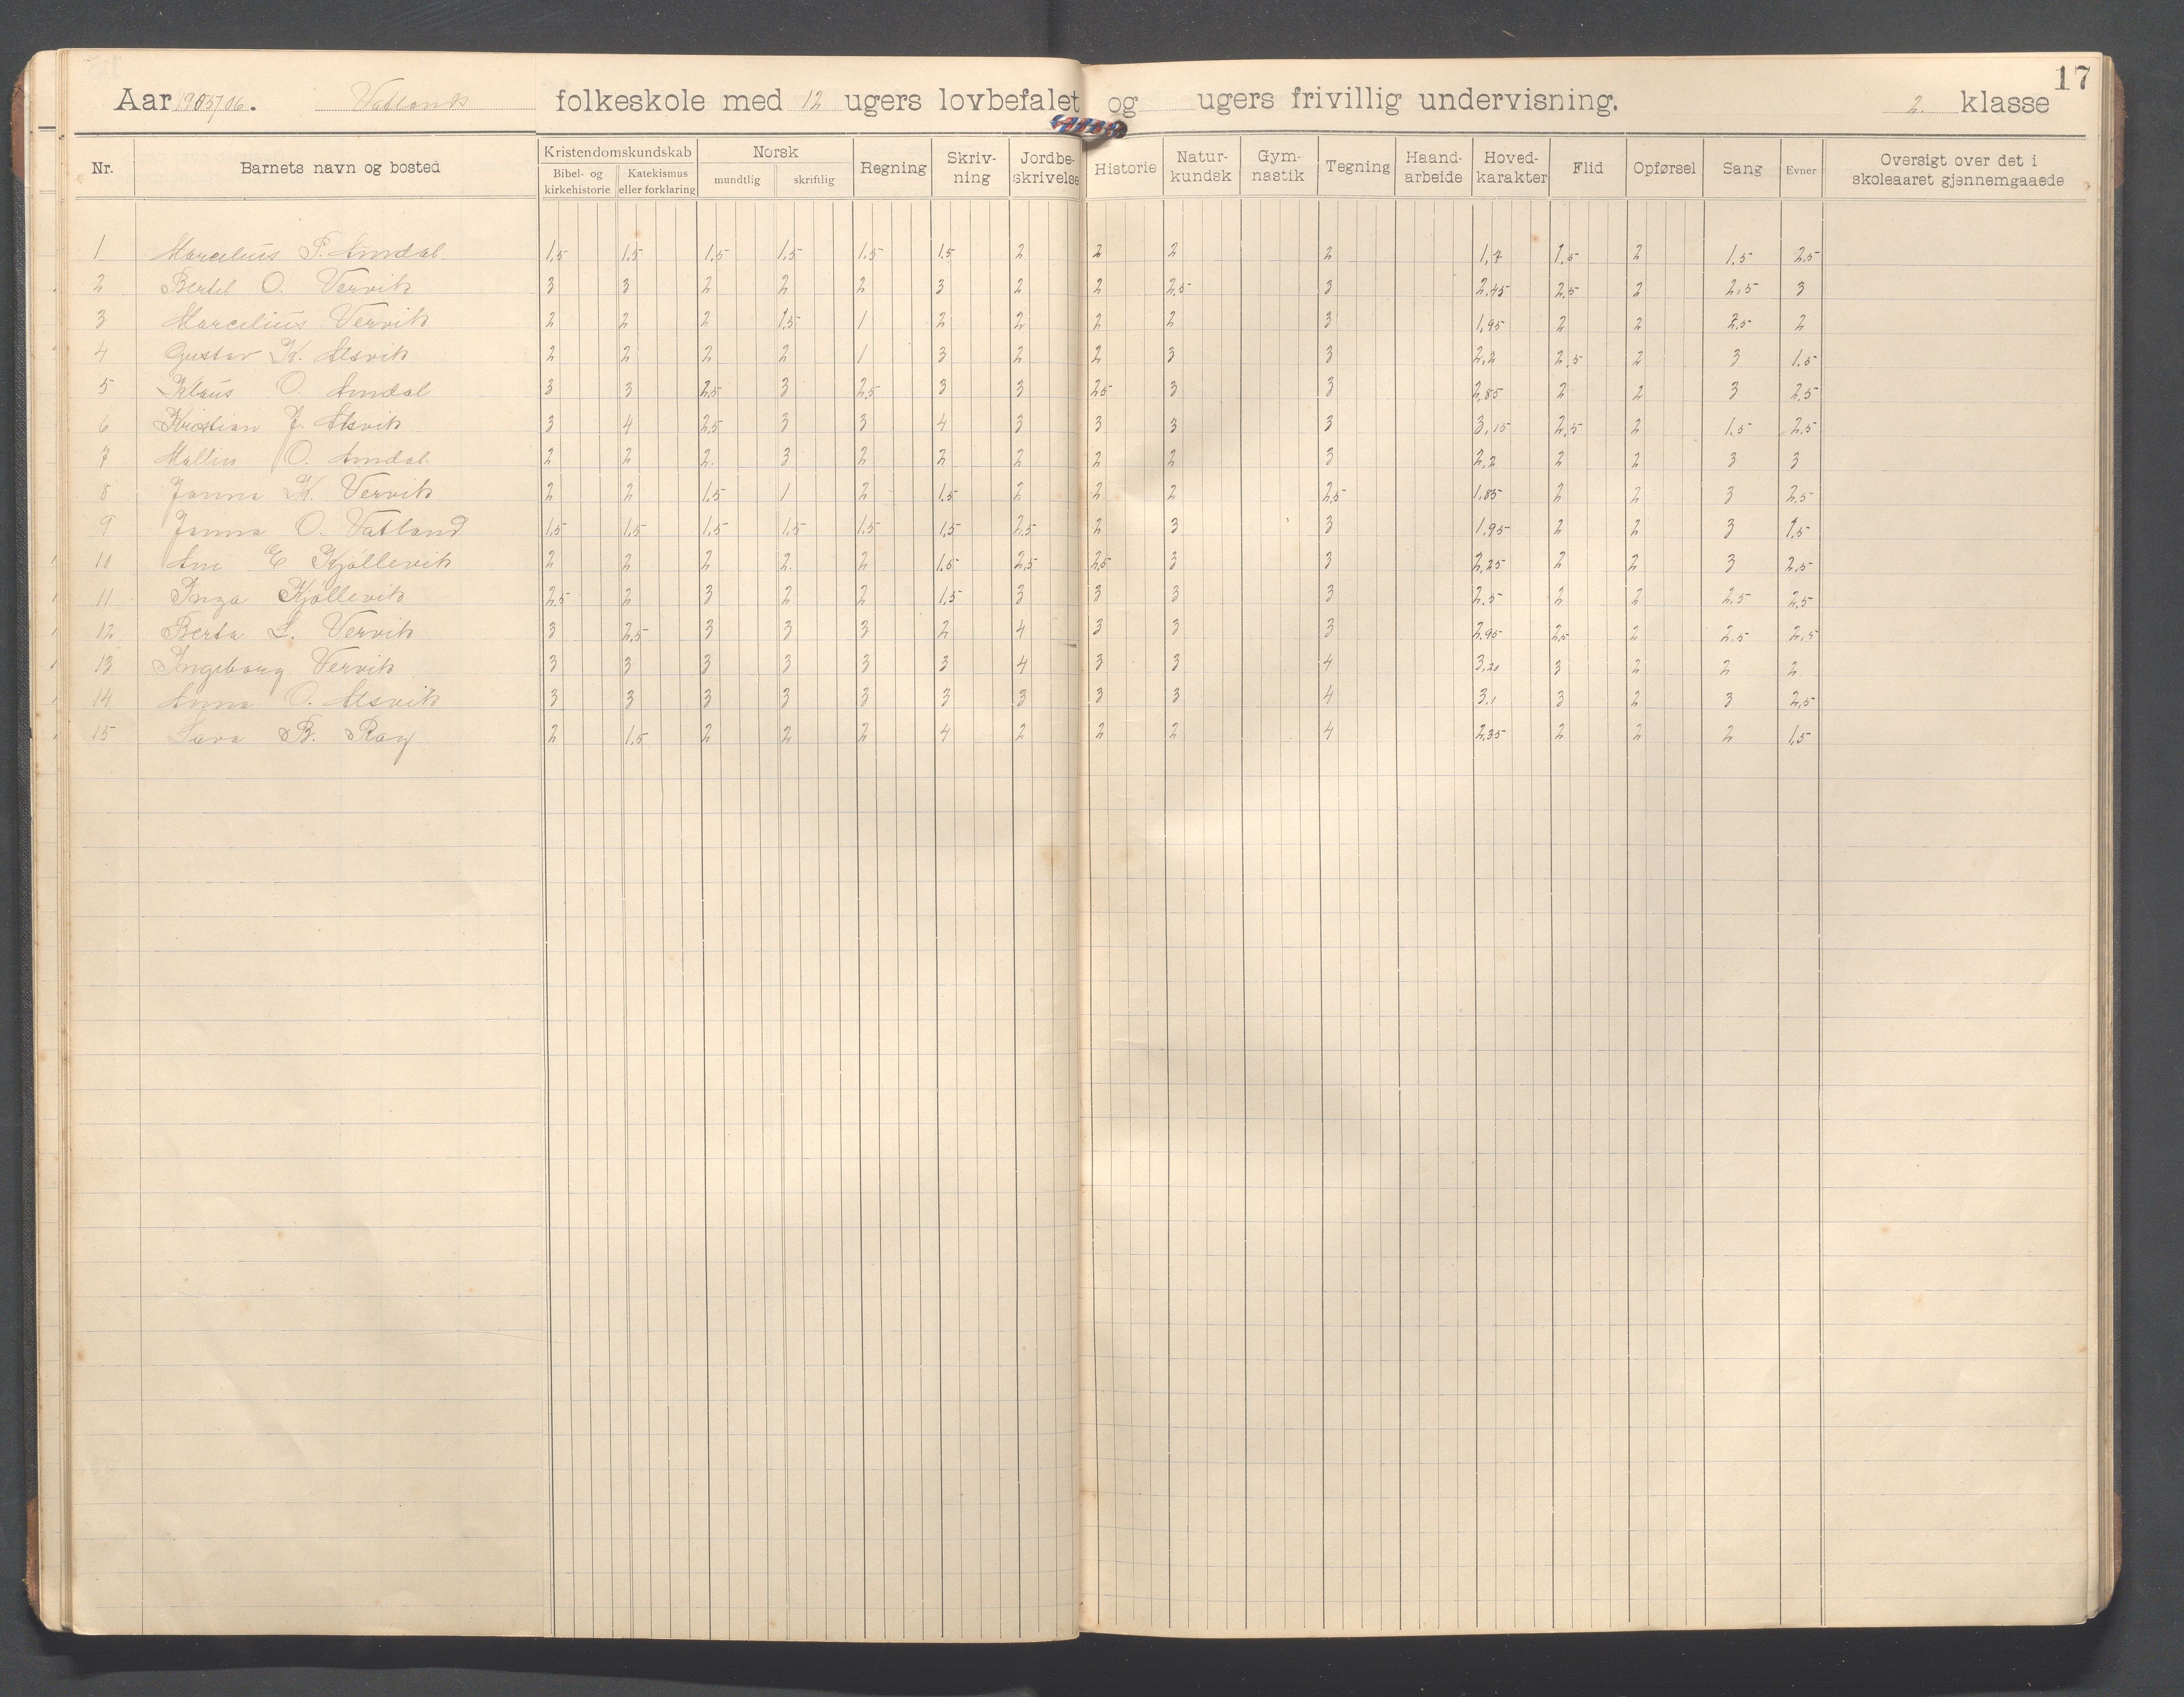 17
Aar 1905/06. Vatlands folkeskole med 12 ugers lovbefalet og ugers frivillig undervisning. 2. klasse
Nr. Barnets navn og bosted Kristendomskundskab Bibel- og kirkehistorie Katekismus eller forklaring Norsk mundtlig skriftlig Regning Skriv-ning Jordbe-skrivelse Historie Natur-kundsk Gym-nastik Tegning Haand-arbeide Hoved-karakter Flid Opførsel Sang Evner Oversigt over det i skoleaaret gjennemgaaede
1 Marcelius P. Amdal 1,5 1,5 1,5 1,5 1,5 1,5 2 2 2 2 1,7 1,5 2 1,5 2,5
2 Bertel O. Vervik 3 3 2 2 2 3 2 2 2,5 3 2,45 2,5 2 2,5 3
3 Marcelius Vervik 2 2 2 1,5 1 2 2 2 2 3 1,95 2 2 2,5 2
4 Gustav K. Alsvik 2 2 2 2 1 3 2 2 3 3 2,2 2,5 2 3 1,5
5 Klaus O. Amdal 3 3 2,5 3 2,5 3 3 2,5 3 3 2,85 2 2 3 2,5
6 Kristian J. Alsvik 3 4 2,5 3 3 4 3 3 3 3 3,15 2,5 2 1,5 2,5
7 Mallin O. Amdal 2 2 2. 3 2 2 2 2 2 3 2,2 2 2 3 3
8 Janna K. Vervik 2 2 1,5 1 2 1,5 2 2 2 2,5 1,85 2 2 3 2,5
9 Janna O. Vatland 1,5 1,5 1,5 1,5 1,5 1,5 2,5 2 3 3 1,95 2 2 3 1,5
10 Ane E Kjøllevik 2 2 2 2. 2 1,5 2,5 2,5 3 3 2,25 2 2 3 2,5
11 Inga Kjøllevik 2,5 2 3 2 2 1,5 3 3 3 3 2,5 2 2 2,5 2,5
12 Berta L. Vervik 3 2,5 3 3 3 2 4 3 3 3 2,95 2,5 2 2,5 2,5
13 Ingeborg Vervik 3 3 3 3 3 3 4 3 3 4 3,20 3 2 2 2
14 Anna O. Alsvik 3 3 3 3 3 3 3 3 3 4 3,1 3 2 3 2,5
15 Sara B. Røg 2 1,5 2 2 2 4 2 2 2 4 2,35 2 2 2 1,5